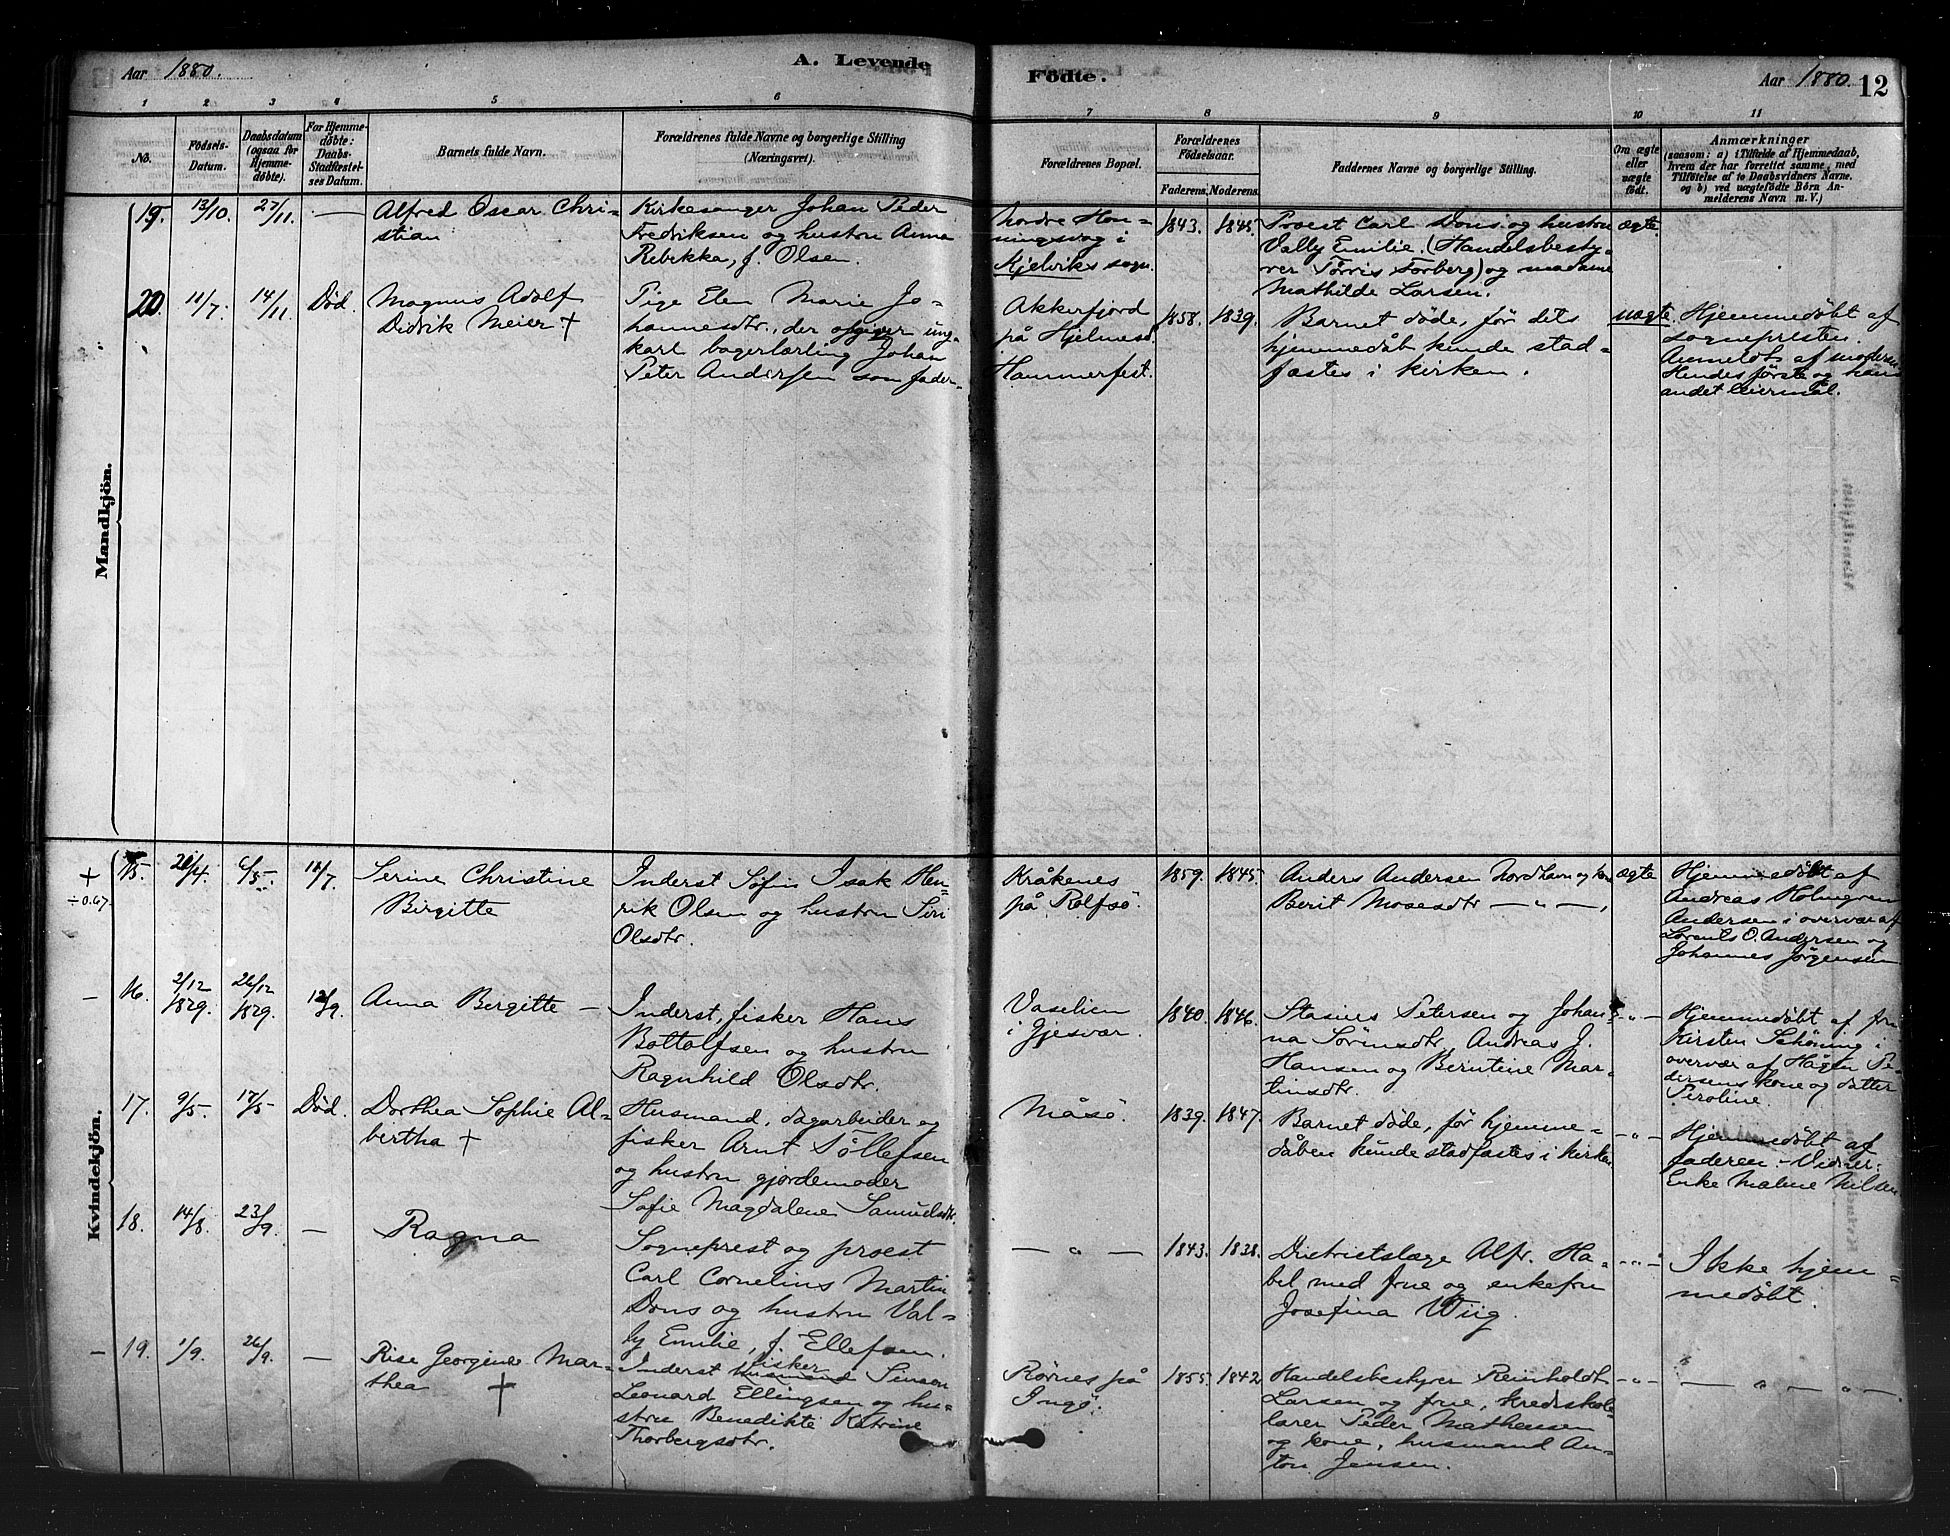 Aar 1880.
A. Levende
Födte.
Aar 1880. 12
1 2 3 4 5 6 7 8 9 10 11
No.
Födsels-
Datum.
Daabsdatum
(ogsaa for
Hjemme-
døbte).
For Hjemme-
døbte:
Daabs-
Stadfæstel-
ses Datum.
Barnets fulde Navn.
Forældrenes fulde Navne og borgerlige Stilling
(Næringsvei).
Forældrenes Bopæl.
Forældrenes
Födselsaar.
Faderens. Moderens.
Faddernes Navne og borgerlige Stilling.
Om ægte
eller
uægte
født.
Anmærkninger
(saasom: a) i Tilfælde af Hjemmedaab,
hvem der har forrettet samme, med
Tilföielse af to Daabsvidners Navne,
og b) ved uægtefödte Börn An-
melderens Navn m. V.)
Mandkjön.
19. 13/10. 27/11. —
Alfred Oscar Chri-
stian
Kirkesanger Johan Peder
Fredriksen og hustru Anna
Rebekka, f. Olsen.
Nordre Hon-
ningsvog i
Kjelviks sogn.
1843. 1845.
Proest Carl Dons og hustru
Vally Emilie. (Handelsbesty-
rer Tørris Forberg) og madame
Mathilde Larsen.
ægte.
20. 11/7. 14/11 Död.
Magnus Adolf
Didrik Meier †
Pige Elen Marie Jo-
hannesdtr., der opgiver ung-
karl bagerlærling Johan
Peter Andersen som fader.
Akkerfjord
på Hjelmesö.
Hammerfest.
1858. 1839.
Barnet döde, för dets
hjemmedåb kunde stad-
fæstes i kirken.
uægte.
Hjemmedöbt af
sognepresten.
Anmeldt af moderen
Hendes förste og hans
andet leiermål.
Kvindekjön.
+
÷ 0.67.
15. 20/4. 6/5. 11/7
Serine Christine
Birgitte
Inderst Søfin Isak Hen-
rik Olsen og hustru Siri
Olsdtr.
Kråkenes
på Rolfsö.
1859. 1845.
Anders Andersen Nordhavn og kone
Berit Mosesdtr — " — ,
ægte
Hjemmedöbt af
Andreas Holmgren
Andersen i overvær af
Lorents O. Andersen og
Johannes Jörgensen
—
16. 2/12 1879. 26/12 1879. 12/9.
Anna Bergitte —
Inderst, fisker Hans
Bottolfsen og hustru
Ragnhild Olsdtr.
i Gjesvær.
1840. 1846.
Petersen og Johan-
na Sörinsdtr. Andreas J.
Hansen og Berntine Mar-
tinsdtr.
— " —
Hjemmedöbt af fru
Kirsten Schöning i
overvær af Hågen Pe-
dersens kone og datter
Peroline.
17. 9/5. 17/5 Död.
Dorthea Sophie Al-
bertha †
Husmand, dagarbeider og
fisker Arnt Töllefsen
og hustru gjordemoder
Sofie Magdalene Samuelsdtr.
Måsö.
1839. 1847.
Barnet döde, för hjemme-
dåben kunde stadfæstes i kirken
— " —
Hjemmedöbt af
faderen. — Vidner:
Enke Malene Nilsen
18. 14/8. 23/9. —
Ragna
Sogneprest og proest
Carl Cornelius Martin
Dons og hustru Val-
ly Emilie, f. Ellefsen.
— " —
1843. 1838.
Districtslæge Alfr. Ha-
bel med frue og enkefru
Josefina Wiig.
— " —
Ikke hjem-
medöbt.
—
19. 1/9. 26/9. —
Rise Georgine Mar-
thea †
Inderst fisker Simon
Leonard Ellingsen og hu-
stru Benedikte Katrine
Thorbergsdtr.
Rørnes på
Ingö.
1855. 1842
Handelsbestyrer Reinholdt
Larsen og frue, kredsskole-
lærer Peder Mathessen
og kone, husmand An-
ton Jensen.
— " —
— " — " —